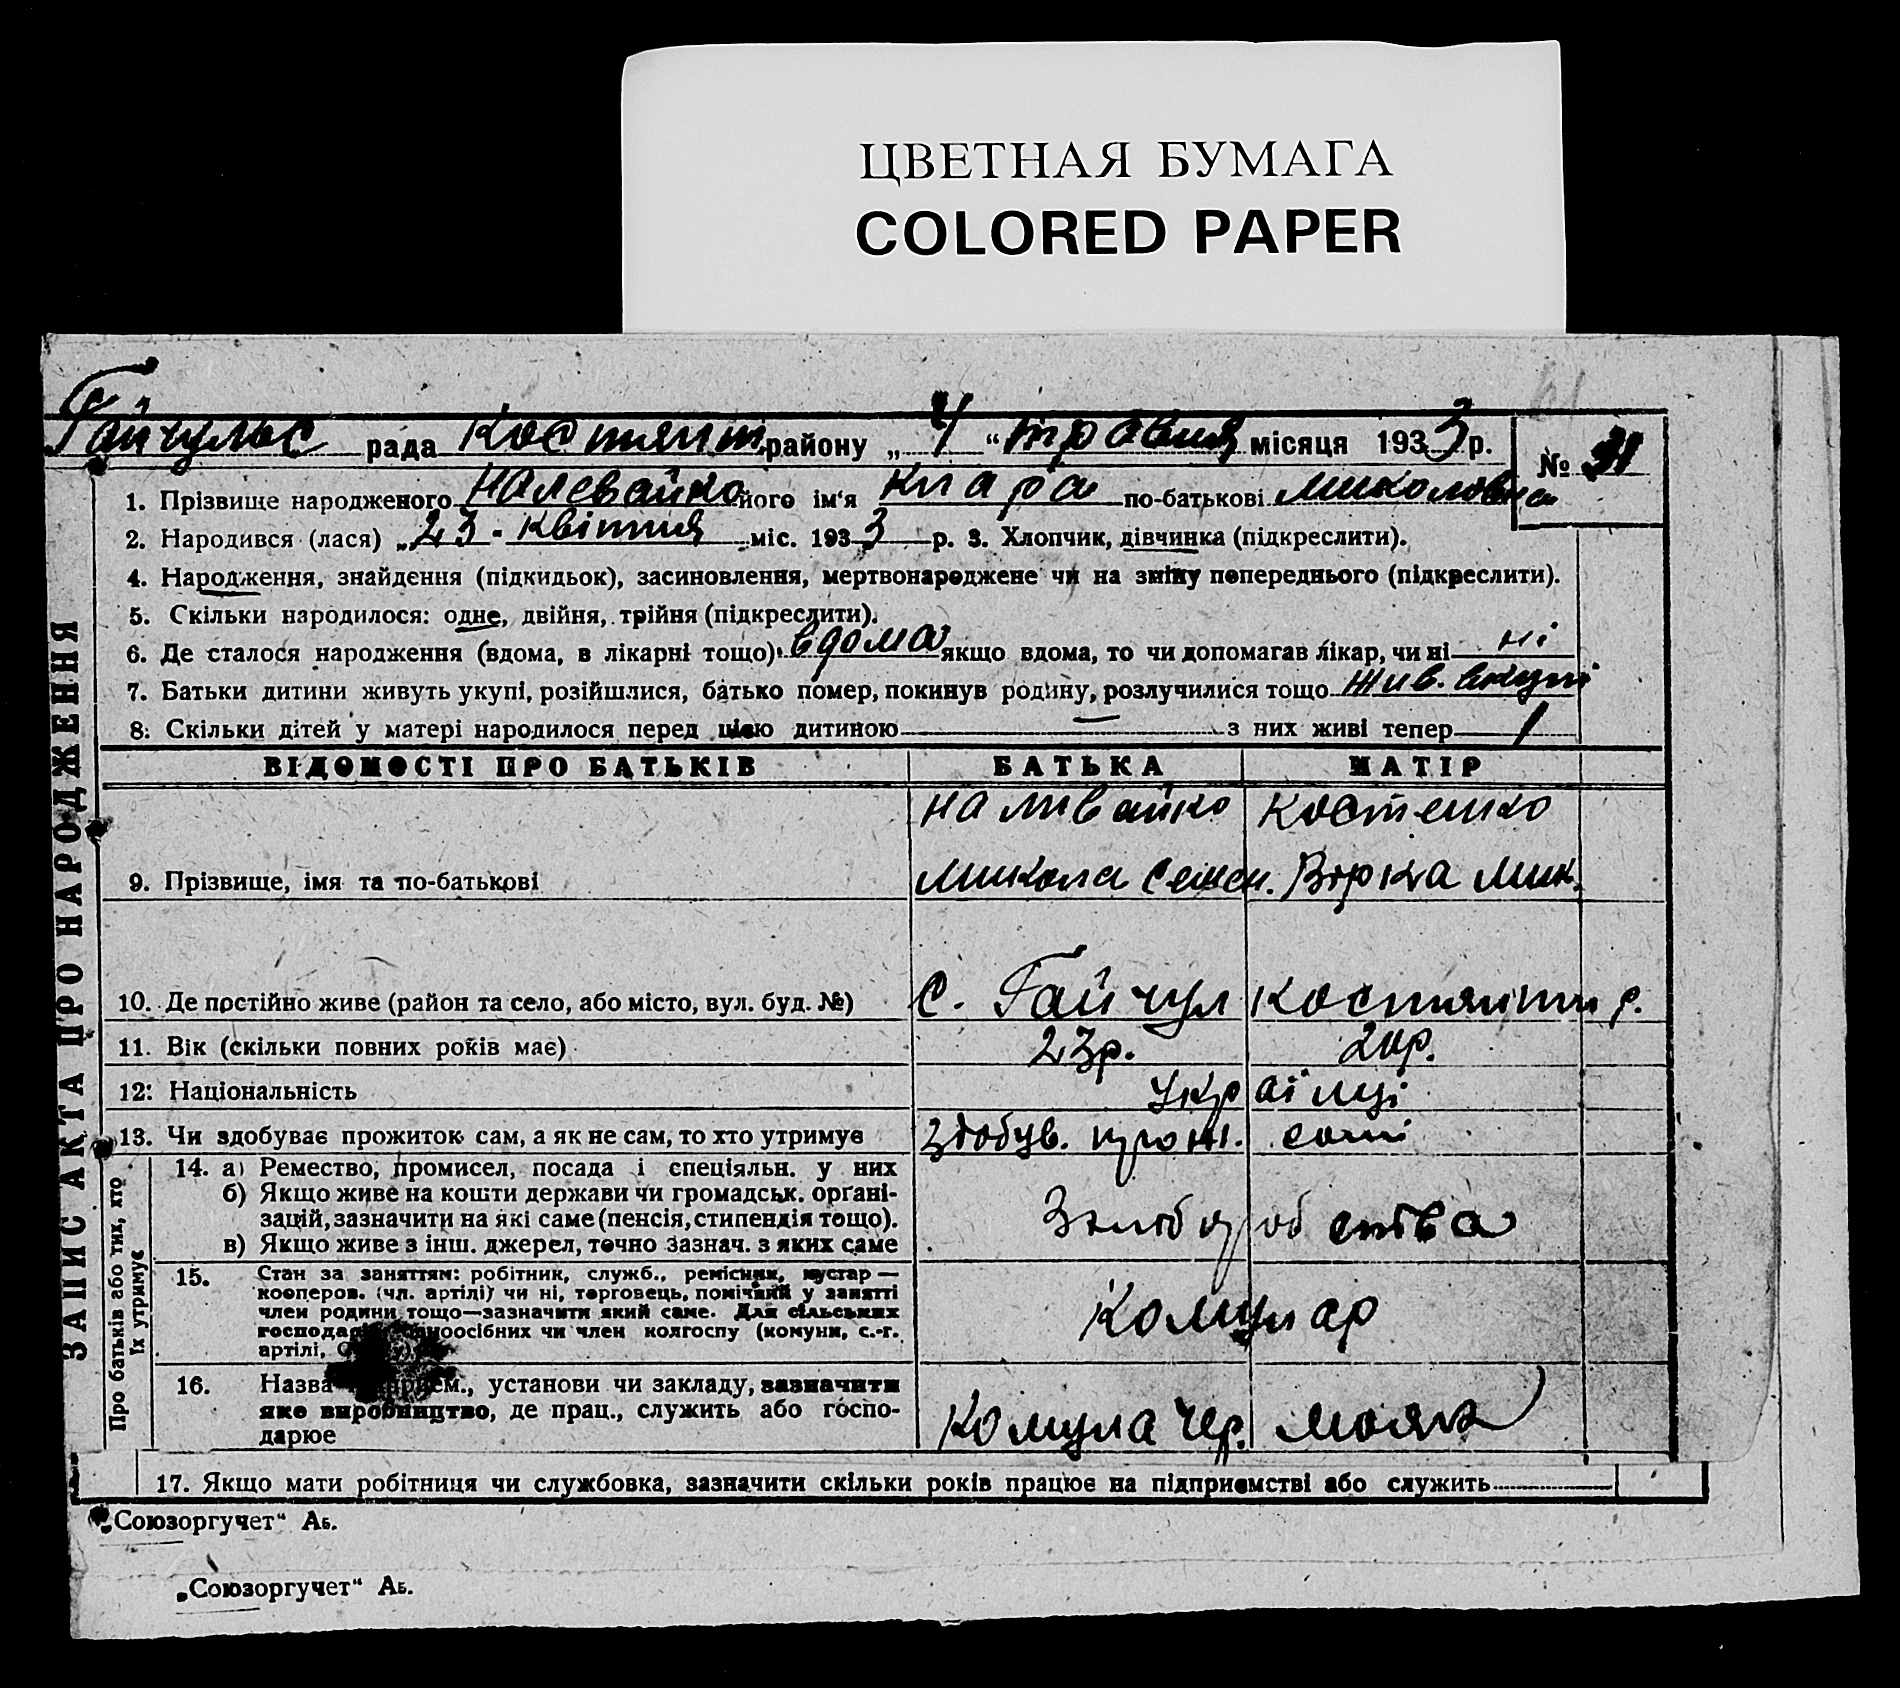 ЦВЕТНАЯ БУМАГА
COLORED PAPER
61
Гайчульс рада Костянт. району „ 4 “ травня місяця 1933 р. № 31
1. Прізвище народженого Налевайко його ім'я Клара по-батькові Миколовна
2. Народився (лася) „ 23 - квітня міс. 193 3 р. 3. Хлопчик, дівчинка (підкреслити).
4. Народження, знайдення (підкидьок), засиновлення, мертвонароджене чи на зміну попереднього (підкреслити).
5. Скільки народилося: одне, двійня, трійня (підкреслити).
6. Де сталося народження (вдома, в лікарні тощо) вдома якщо вдома, то чи допомагав лікар, чи ні ні
7. Батьки дитини живуть укупі, розійшлися, батько помер, покинув родину, розлучилися тощо жив. вкупі
8. Скільки дітей у матері народилося перед цією дитиною — з них живі тепер 1
ВІДОМОСТІ ПРО БАТЬКІВ БАТЬКА МАТІР
Наливайко Костенко
9. Прізвище, імя та по-батькові Микола Семен. Вірка Мик.
10. Де постійно живе (район та село, або місто, вул. буд. №) С. Гайчул Костянтин р.
11. Вік (скільки повних років має) 23р. 20р.
12. Національність Українці
13. Чи здобуває прожиток сам, а як не сам, то хто утримує Здобув. прож. самі
14. а) Ремество, промисел, посада і спеціяльн. у них
б) Якщо живе на кошти держави чи громадськ. органі-
зацій, зазначити на які саме (пенсія, стипендія тощо).
в) Якщо живе з інш. джерел, точно зазнач. з яких саме
Хлібороб ства
15. Стан за заняттям: робітник, служб., ремісник, кустар —
кооперов. (чл. артілі) чи ні, торговець, помічний у занятті
член родини тощо—зазначити який саме. Для сільських
господарів одноосібних чи член колгоспу (комуни, с.-г.
артілі,
Комунар
16. Назва підприєм., установи чи закладу, зазначити
яке виробництво, де прац., служить або госпо-
дарює
Комуна Чер. Маяк
17. Якщо мати робітниця чи службовка, зазначити скільки років працює на підприємстві або служить
„Союзоргучет“ Аб.
„Союзоргучет“ Аб.
ЗАПИС АКТА ПРО НАРОДЖЕННЯ
Про батьків або тих, хто
їх утримує